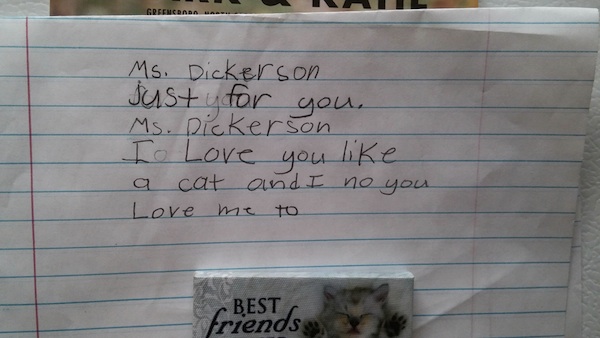 GREENSBORO, NORTH
Ms. Dickerson
Just for you.
Ms. Dickerson
I Love you like
a cat and I no you
Love me to
BEST
friends